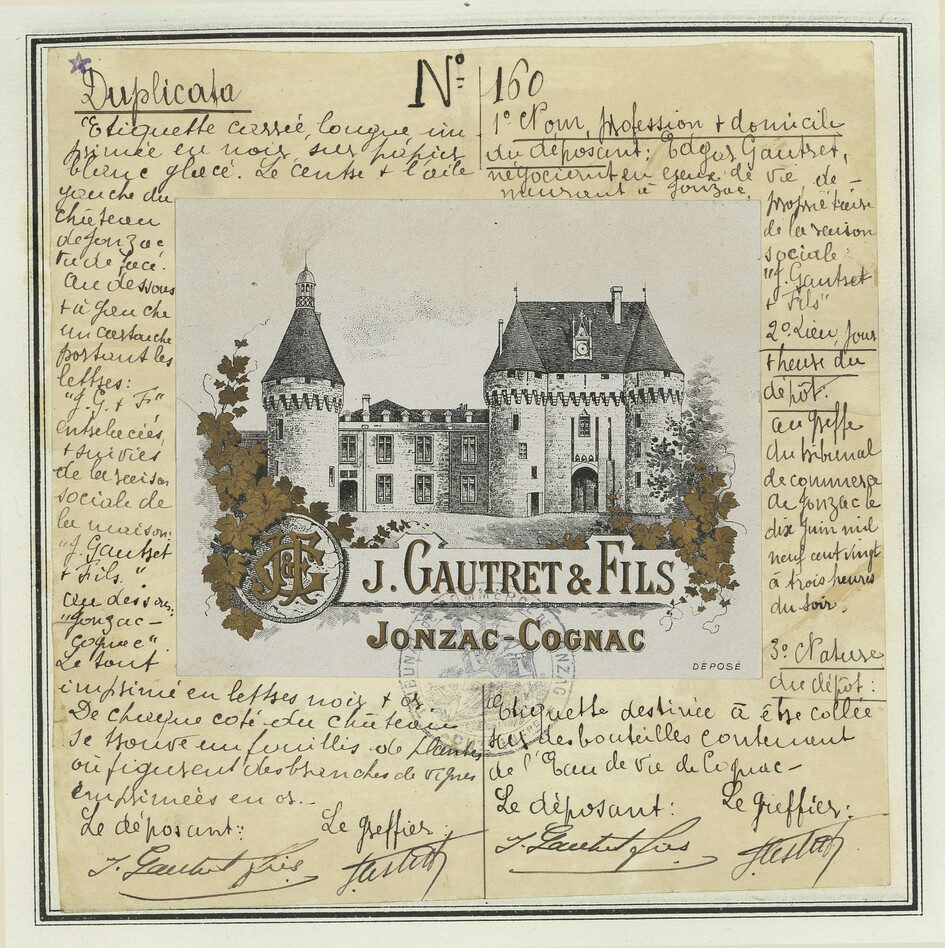 Duplicata
N° 160
Etiquette carrée, longue im-
primée en noir, sur papier
blanc glacé. Le centre & l'aile
gauche du
château
de Jonzac
vu de face.
Au dessous
& à gauche
un cartouche
portant les
lettres:
"J. G. & F"
entrelacées,
& suivies
de la raison
sociale de
la maison:
"J. Gautret
& Fils."
au dessous:
"Jonzac-
Cognac"
Le tout
imprimé en lettres noir & or.
De chaque coté du château
se trouve un fouillis de plantes
où figurent des branches de vignes
imprimées en or.-
Le déposant: Le Greffier:
J. Gautret fils
1° Nom, profession & domicile
du déposant: Edgar Gautret,
négociant en eaux de vie, de-
meurant à Jonzac,
propriétaire
de la raison
sociale:
"J. Gautret
& Fils"
2° Lieu, jour
& heure du
dépôt.
au greffe
du tribunal
de commerce
de Jonzac le
dix Juin mil
neuf cent vingt
à trois heures
du soir.
3° Nature
du dépôt:
Etiquette destinée à être collée
sur des bouteilles contenant
de l'Eau de vie de Cognac-
Le déposant: Le Greffier:
J. Gautret fils
J&GF
J. GAUTRET & FILS
JONZAC-COGNAC
DÉPOSÉ
TRIBUNAL DE COMMERCE DE JONZAC